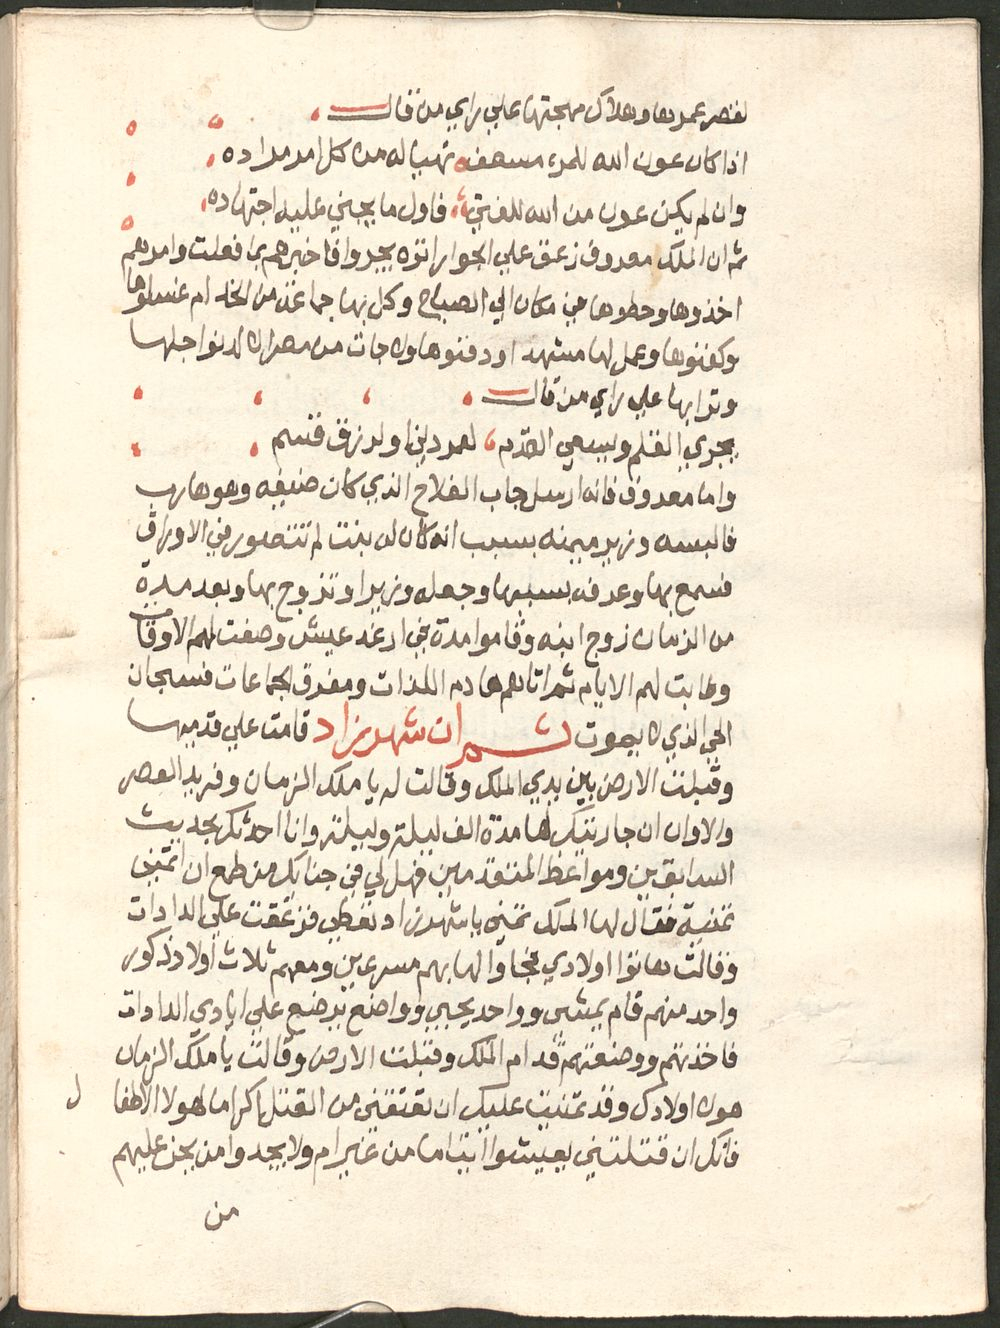 لقصر عمرها وهلاك مهجتها علي راي من قال
اذا كان عون الله للمرء مسعفه تهيا له من كل امر مراده
وان لم يكن عون من الله للفتي فاول ما يجني عليه اجتهاده
ثم ان الملك معروف زعق علي الجوار اتوه يجروا فاخبرهم بما فعلت وامرهم
اخذوها وحطوها في مكان الي الصباح وكل بها جماعة من الخدام غسلوها
وكفنوها وعمل لها مشهد اودفنوها ولا جات من مصر الا لدنو اجلها
وترابها علي راي من قال
يجري القلم ويسعي القدم لعمر دني او لرزق قسم
واما معروف فانه ارسل جاب الفلاح الذي كان ضيفه وهو هارب
فالبسه وزير ميمنه بسبب انه كان له بنت لم تتصور في الاوراق
فسمع بها وعرفه بسببها وجعله وزيرا وتزوج بها وبعد مدة
من الزمان زوج ابنه وقاموا مدة في ارغد عيش وصفت لهم الاوقات
وطابت لهم الايام ثم اتاهم هادم اللذات ومفرق الجماعات فسبحان
الحي الذي لا يموت ثم ان شهرزاد قامت علي قدميها
وقبلت الارض بين يدي الملك وقالت له يا ملك الزمان وفريد العصر
والاوان ان جاريتك لها مدة الف ليلة وليلة وانا احدثك بحديث
السابقين ومواعظ المتقدمين فهل لي في جنابك من طمع ان اتمني
تمنية فقال لها الملك تمني يا شهرزاد تعطي فزعقت علي الدادات
وقالت هاتوا اولادي فجاوا لها بهم مسرعين ومعهم ثلاث اولاد ذكور
واحد منهم قام يمشي وواحد يحبي وواضع يرضع علي ايادي الدادات
فاخذتهم ووضعتهم قدام الملك وقبلت الارض وقالت يا ملك الزمان
هولا اولادك وقد تمنيت عليك ان تعتقني من القتل اكراما لهولا الاطفا
ل
فانك ان قتلتني يعيشوا ايتاما من غير ام ولا يجدوا من يحن عليهم
من